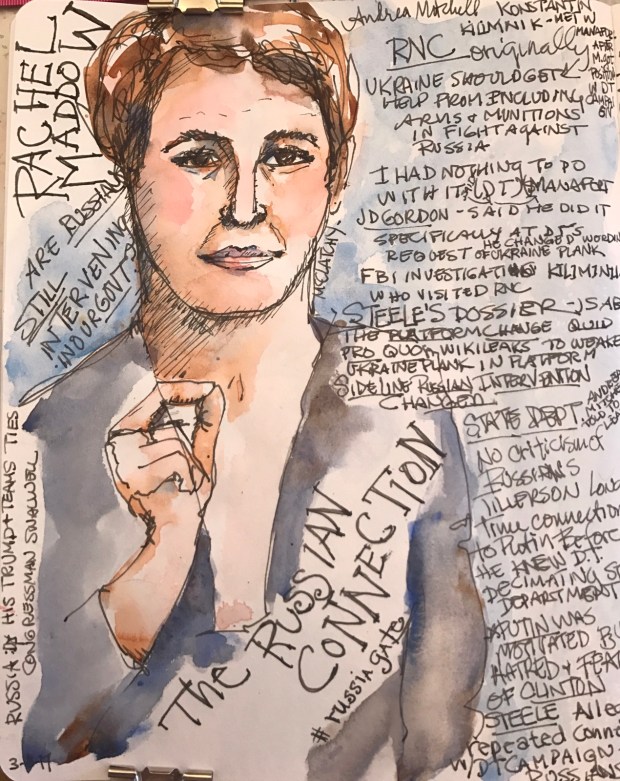 RACHEL
MADDOW
ARE RUSSIANS
STILL
INTERVENING
IN OUR GOVT?
RUSSIA & HIS TRUMP & TEAMS TIES
CONGRESSMAN SWALWELL
Andrea Mitchell KONSTANTIN
KILIMNIK - MET W
MANAFORT
AFTER
M. GOT
POSITION
W DT
CAMPAIGN
RNC originally
UKRAINE SHOULD GET
HELP FROM INCLUDING
ARMS & MUNITIONS
IN FIGHT AGAINST
RUSSIA
I HAD NOTHING TO DO
WITH IT (DT) MANAFORT
JD GORDON - SAID HE DID IT
SPECIFICALLY AT DT'S
HE CHANGED WORDING
REQUEST OF UKRAINE PLANK
FBI INVESTIGATING KILIMNIK
WHO VISITED RNC
MCLATCHY
STEELE'S DOSSIER - 
THE PLATFORM CHANGE QUID
PRO QUO WIKILEAKS TO WEAKEN
UKRAINE PLANK IN PLATFORM
SIDELINE RUSSIAN INTERVENTION
CHANGED
STATE DEPT
ANDREA
MITCHELL
TOLD TO
No criticism of
RUSSIANS
TILLERSON Long
time connection
to Putin Before
HE KNEW D.T.
DECIMATING ST
DEPARTMENT
PUTIN WAS
MOTIVATED BY
HATRED & FEAR
OF CLINTON
STEELE Alleg
repeated Conn
W/ DT CAMPAIGN
The RUSSIAN
CONNECTION
# russia gate